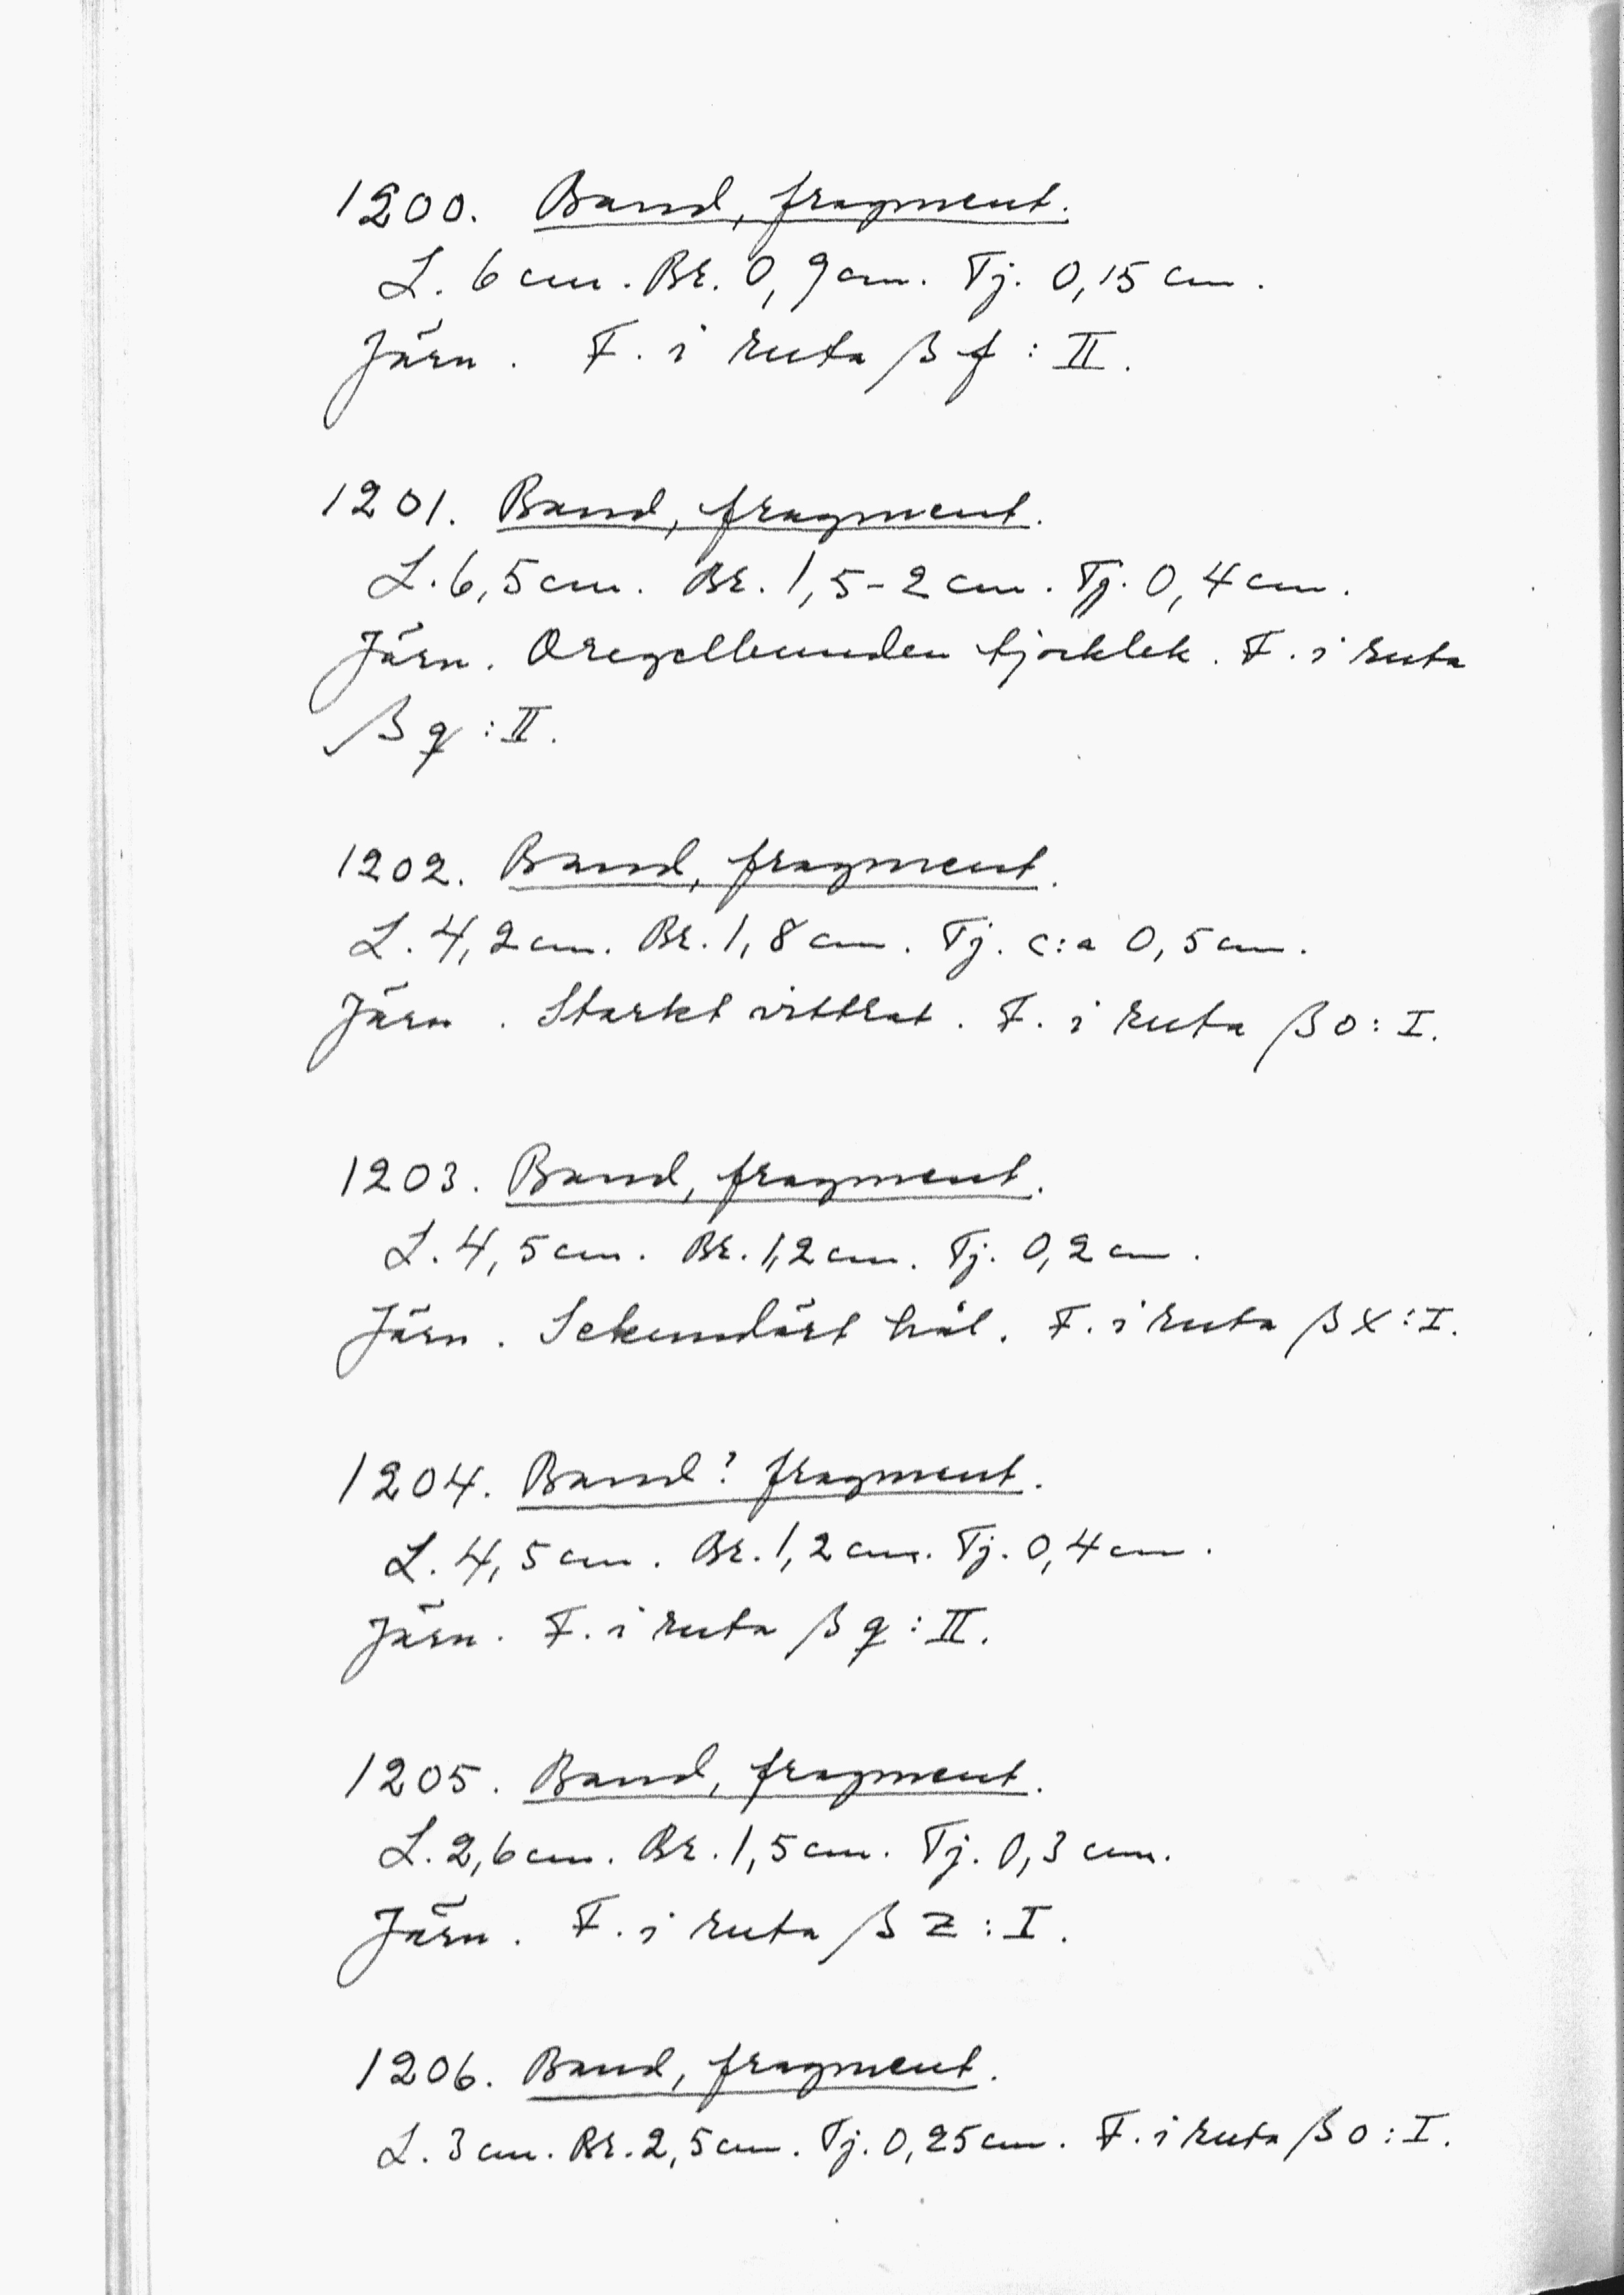 1200. Band, fragment.
L. 6 cm. Br. 0,9 cm. Tj. 0,15 cm.
Järn. F. i ruta β f : II.
1201. Band, fragment.
L. 6,5 cm. Br. 1,5-2 cm. Tj. 0,4 cm.
Järn. Oregelbunden tjocklek. F. i ruta
β q : II.
1202. Band, fragment.
L. 4,2 cm. Br. 1,8 cm. Tj. c:a 0,5 cm.
Järn. Starkt vittrat. F. i ruta β o : I.
1203. Band, fragment.
L. 4,5 cm. Br. 1,2 cm. Tj. 0,2 cm.
Järn. Sekundärt hål. F. i ruta β x : I.
1204. Band? fragment.
L. 4,5 cm. Br. 1,2 cm. Tj. 0,4 cm.
Järn. F. i ruta β q : II.
1205. Band, fragment.
L. 2,6 cm. Br. 1,5 cm. Tj. 0,3 cm.
Järn. F. i ruta β z : I.
1206. Band, fragment.
L. 3 cm. Br. 2,5 cm. Tj. 0,25 cm. F. i ruta β o : I.